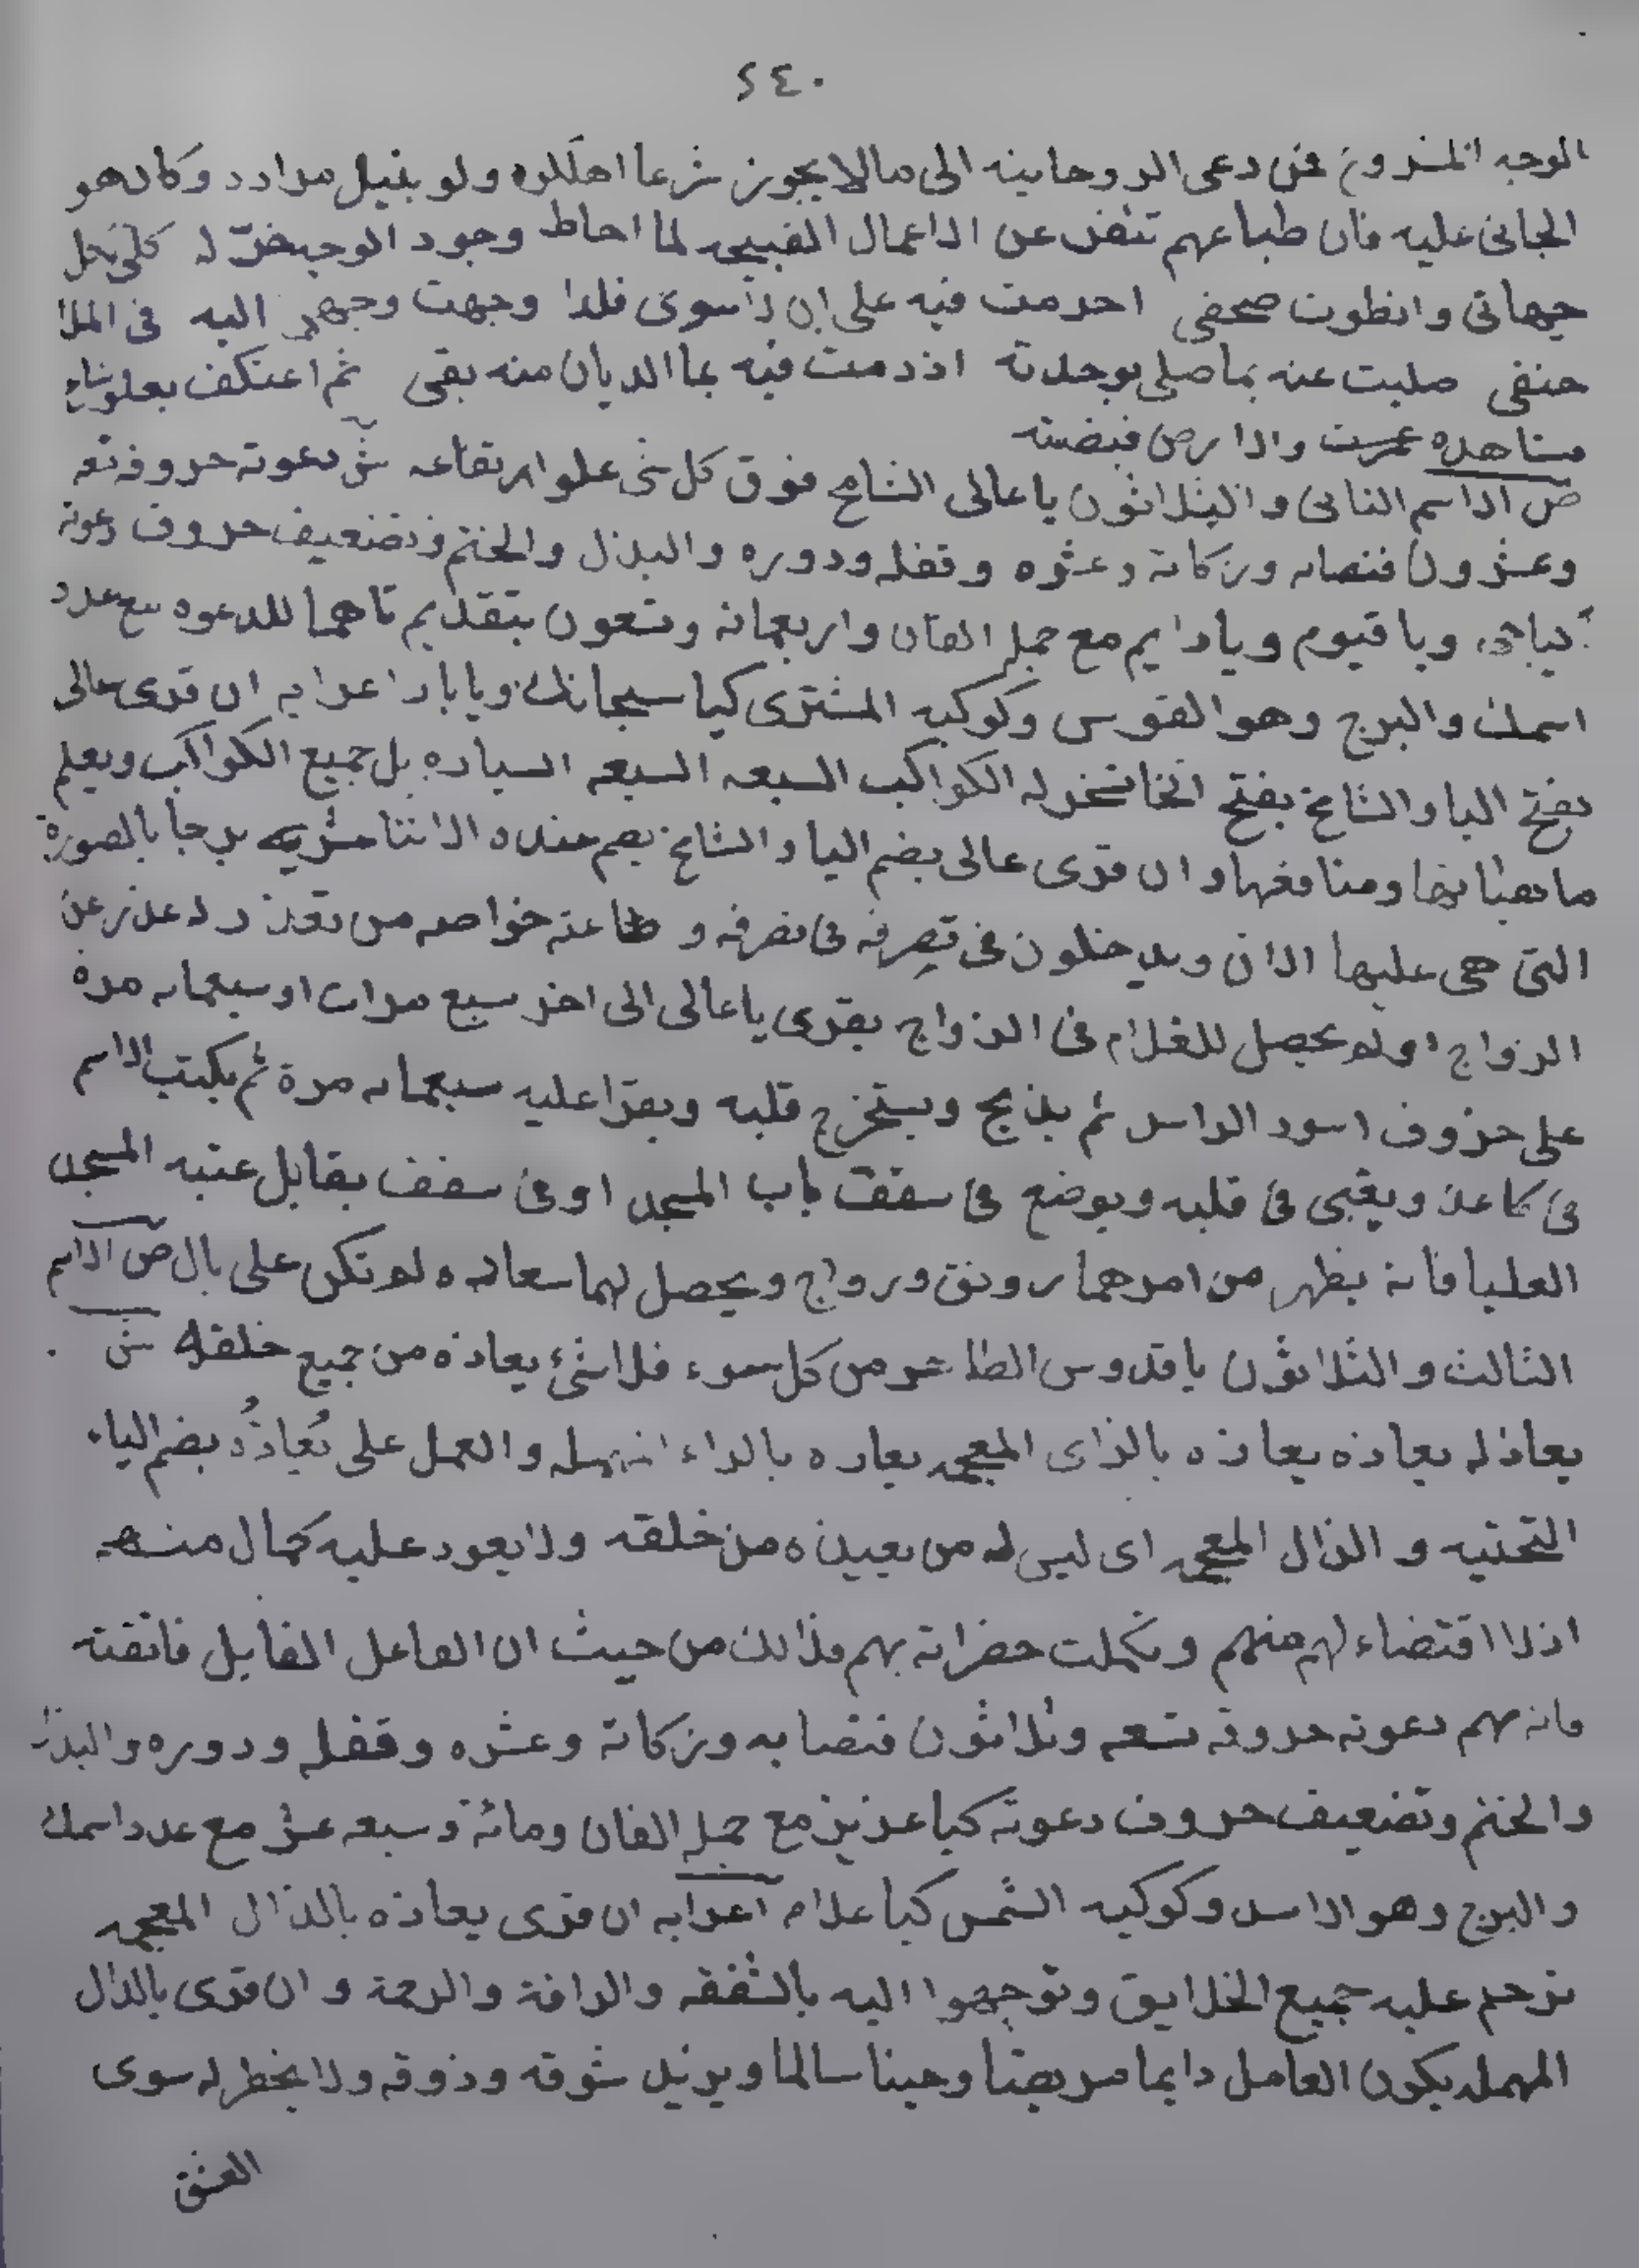 ٤٤٠
الوجه المشروع فمن دعى الروحانيه الى مالا يجوز شرعا اهلكوه ولو بنيل مراده وكان هو
الجانى عليه فان طباعهم تنفر عن الاعمال القبيحه لما احاط وجود الوجه له كلى بحل
جهاتى وانطوت صحفى احرمت فيه على ان لا سوى فلذا وجهت وجهى اليه فى الملا
حنفى صليت عنه بما صلى بوحدته اذ دمت فيه بما الديان منه بقى ثم اعتكف بعلو
مشاهده عمرت والارض قبضته
ص الاسم الثانى والثلاثون يا عالى الشامخ فوق كل شى علوا ارتفاعه ش دعوته حروفه تسعه
وعشرون فنصابه وزكاته وعشره وقفله ودوره والبذل والختم وتضعيف حروف دعوته
كياحى ويا قيوم ويا دايم مع جمله الفان واربعمائه وتسعون بتقديم تاهما للدعوه مع عدد
اسمك والبرج وهو القوس وكوكبه المشترى كيا سبحانك ويا بار اعرابه ان قرى عالى
بفتح اليا والشامخ بفتح الخا تسخر له الكواكب السبعه السبعه السياره بل جميع الكواكب ويعلم
ما ومنافعها وان قرى عالى بضم اليا والشامخ بضم عنده الاثنا عشريه برجا بالصورة
التى هى عليها الان ويدخلون فى تصرفه فى تصرفه وطاعته خواصه من تعذر له عذر عن
الزواج او لم يحصل للغلام فى الزواج يقرى يا عالى الى اخر سبع مرات او سبعمائه مرة
على خروف اسود الراس ثم يذبح ويستخرج قلبه ويقرا عليه سبعمائه مرة ثم يكتب الاسم
فى كاغد ويغبى فى قلبه ويوضع فى سقف باب المسجد او فى سقف يقابل عتبه المسجد
العليا فانه يظهر من امرهما رونق ورواج ويحصل لهما سعاده لم تكن على بال ص الاسم
الثالث والثلاثون يا قدوس الطاهر من كل سوء فلا شئ يعاذه من جميع خلقه ش
يعاذله يعاذه يعازه بالزاى المعجمه يعاره بالراء المهمله والعمل على يُعاذُهُ بضم الياء
التحتيه والذال المعجمه اى ليس له من يعيذه من خلقه ولا يعود عليه كمال منهم
اذ لا اقتضاء لهم منهم وتكملت حضراته بهم فذالك من حيث ان الفاعل القابل فاتقنته
فانه مهم دعوته حروفه تسعه وثلاثون فنصابه وزكاته وعشره وقفله ودوره والبذل
والختم وتضعيف حروف دعوته كيا عزيز مع جمله الفان ومائة وسبعه عشر مع عدد اسمك
والبرج وهو الاسد وكوكبه الشمس كيا علام اعرابه ان قرى يعاذه بالذال المعجمه
ترحم عليه جميع الخلايق وتوجهوا اليه بالشفقه والرافة والرحمة وان قرى بالدال
المهمله يكون العامل دايما مريضا وحينا سالما ويزيد شوقه وذوقه ولا يخطر له سوى
العشق